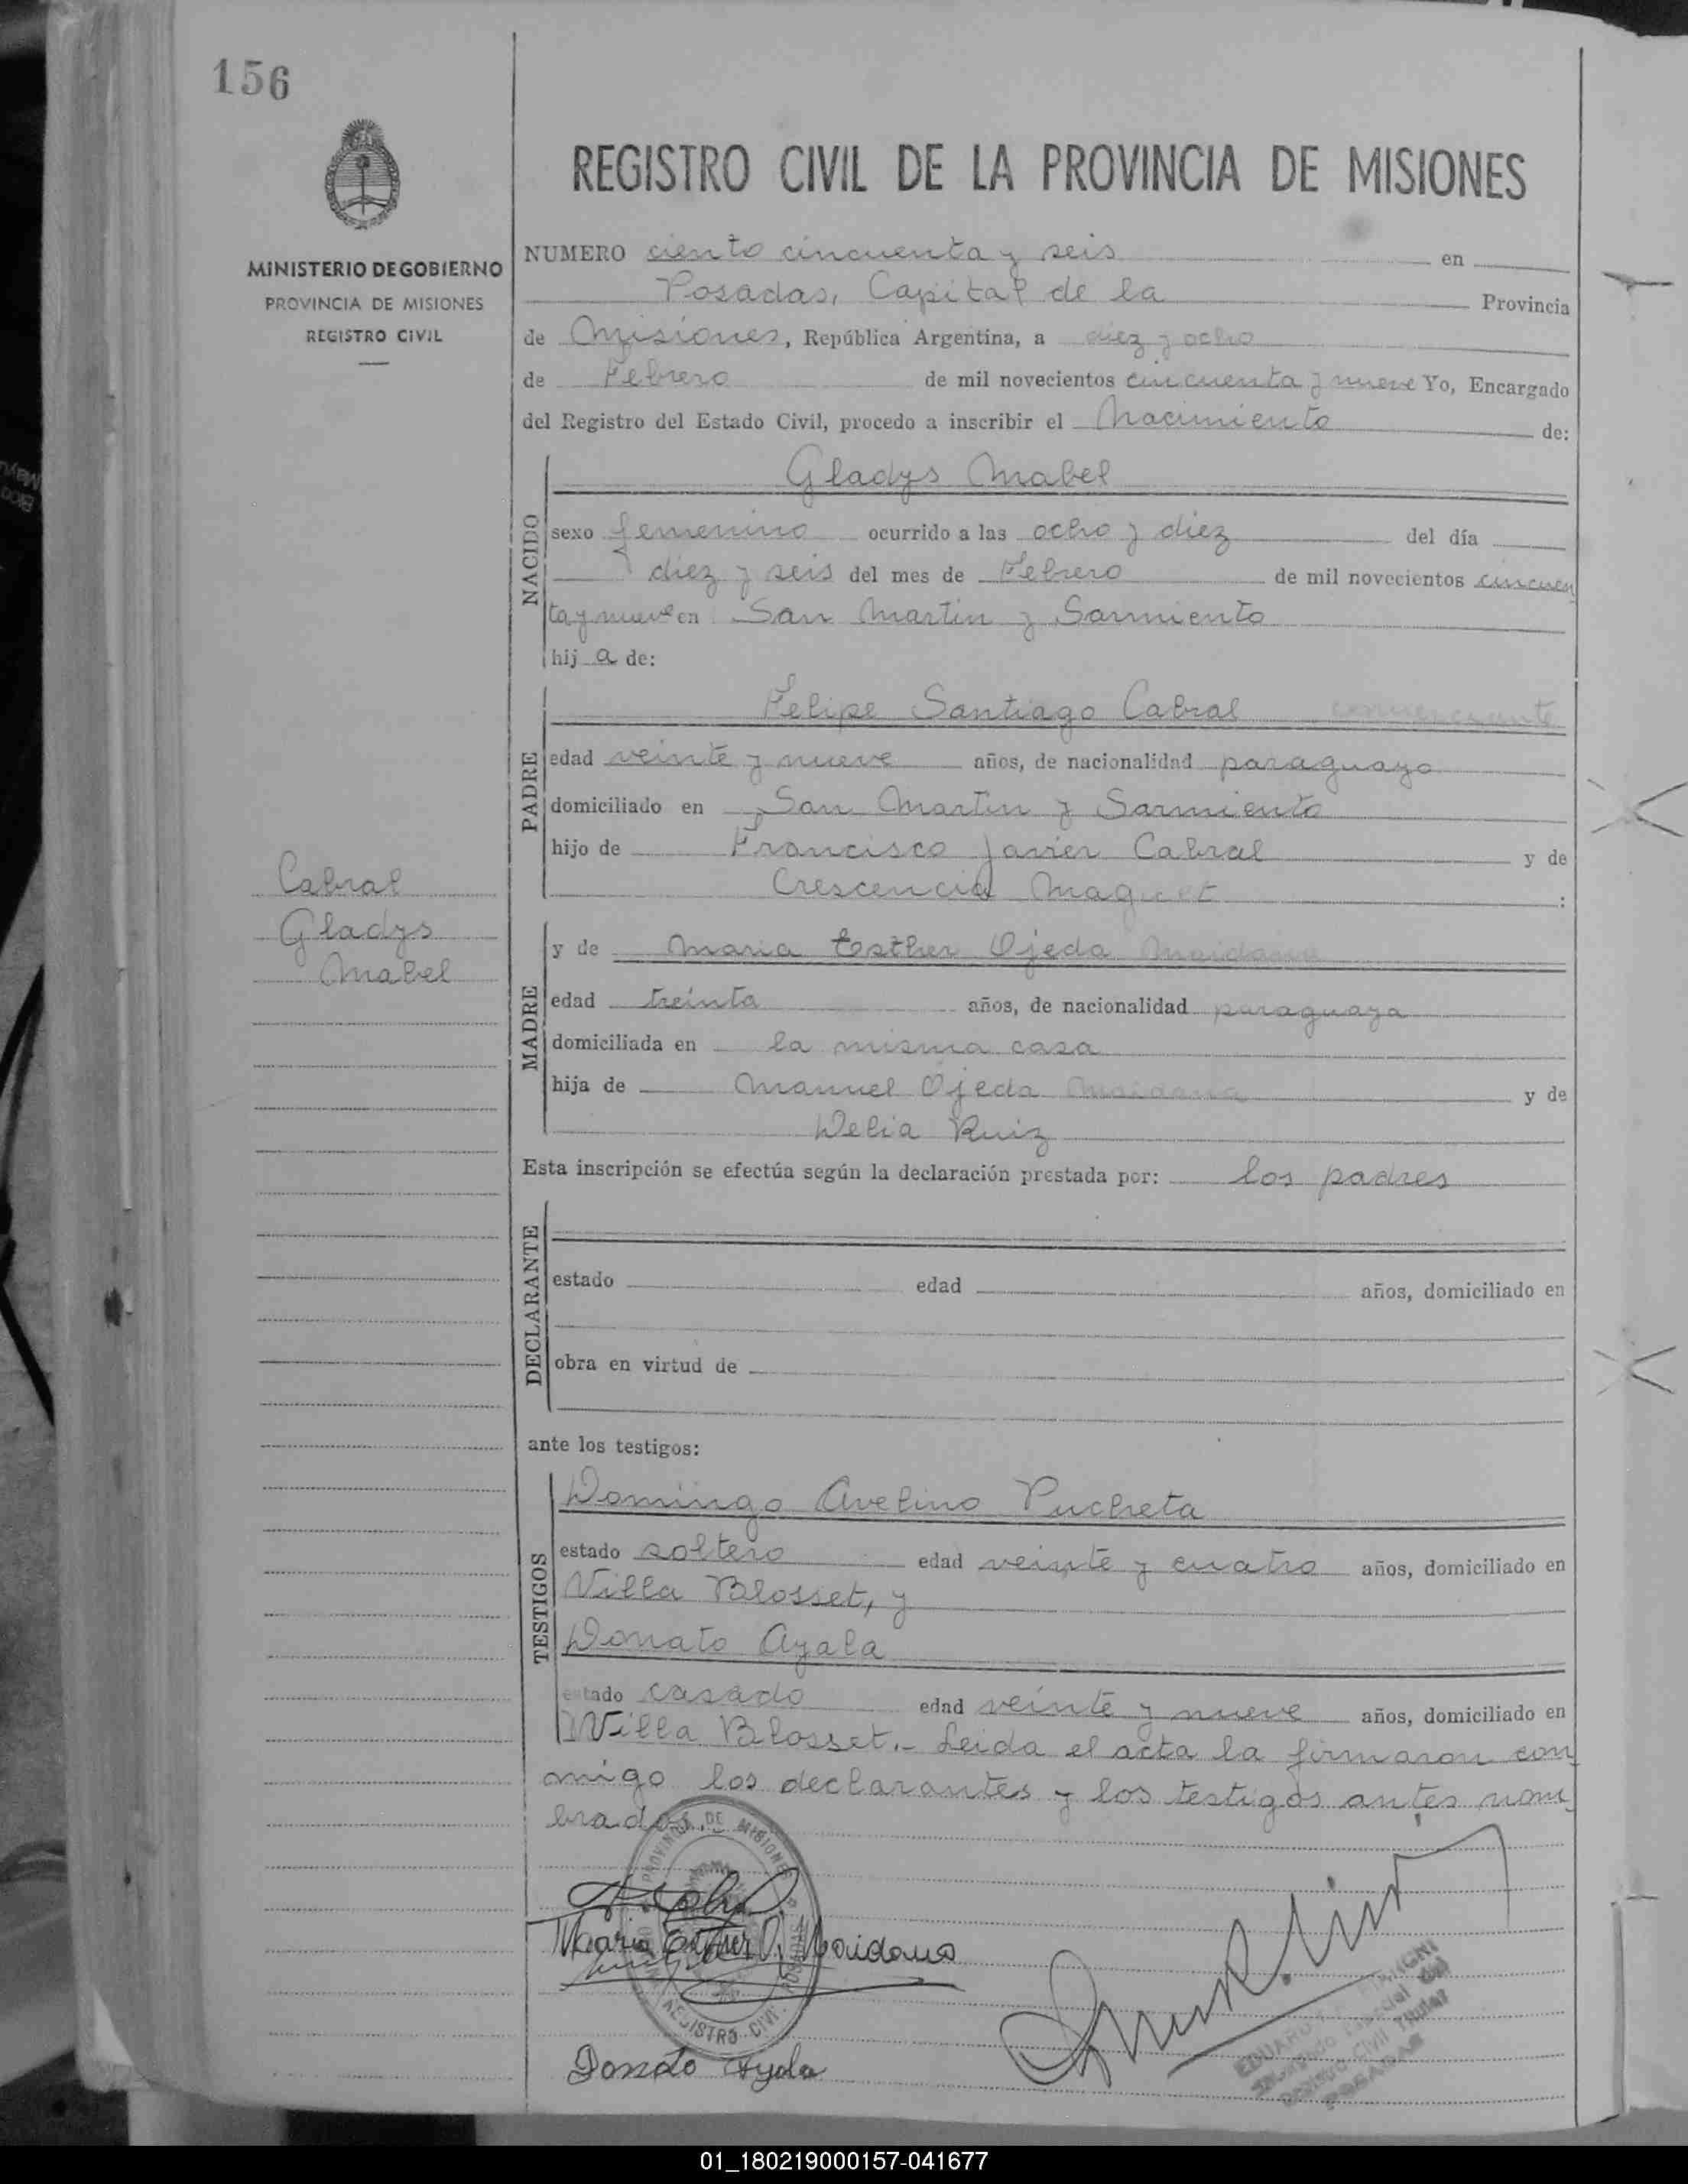 156
REGISTRO CIVIL DE LA PROVINCIA DE MISIONES
MINISTERIO DE GOBIERNO
PROVINCIA DE MISIONES
REGISTRO CIVIL
NUMERO ciento cincuenta y seis en
Posadas, Capital de la Provincia
de Misiones, República Argentina, a diez y ocho
de Febrero de mil novecientos cincuenta y nueve Yo, Encargado
del Registro del Estado Civil, procedo a inscribir el Nacimiento de:
NACIDO
Gladys Mabel
sexo femenino ocurrido a las ocho y diez del día
diez y seis del mes de Febrero de mil novecientos cincuen
ta y nueve en San Martin y Sarmiento
hij a de:
PADRE
Felipe Santiago Cabral comerciante
edad veinte y nueve años, de nacionalidad paraguayo
domiciliado en San Martin y Sarmiento
hijo de Francisco Javier Cabral y de
Crescencia Maquet :
Cabral
Gladys
Mabel
MADRE
y de Maria Esther Ojeda Maidana
edad treinta años, de nacionalidad paraguaya
domiciliada en la misma casa
hija de Manuel Ojeda Maidana y de
Delia Ruiz
Esta inscripción se efectúa según la declaración prestada por: los padres
DECLARANTE
estado edad años, domiciliado en
obra en virtud de
ante los testigos:
TESTIGOS
Domingo Avelino Pucheta
estado soltero edad veinte y cuatro años, domiciliado en
Villa Blosset, y
Donato Ayala
estado casado edad veinte y nueve años, domiciliado en
Villa Blosset.- Leida el acta la firmaron con
migo los declarantes y los testigos antes nom
brados.
PROVINCIA DE MISIONES
Maria Esther O. Maidana
REGISTRO CIVIL
POSADAS
Donato Ayala
Registro Civil Titular
POSADAS
01_180219000157-041677